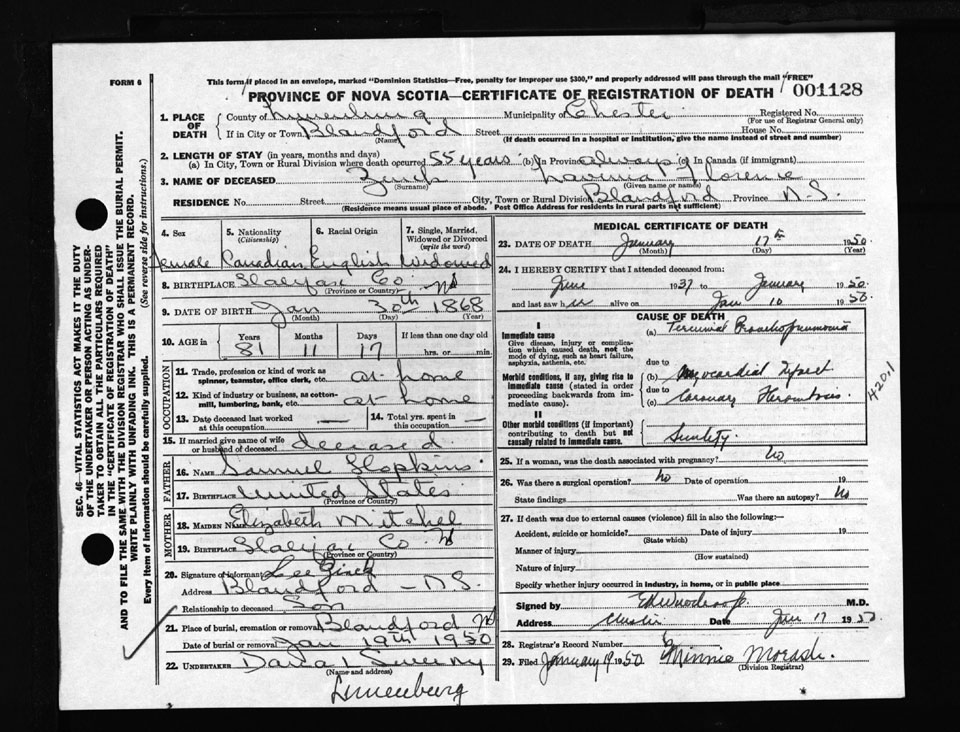 FORM 6
This form if placed in an envelope, marked "Dominion Statistics—Free, penalty for improper use $300," and properly addressed will pass through the mail "FREE"
PROVINCE OF NOVA SCOTIA—CERTIFICATE OF REGISTRATION OF DEATH 001128
1. PLACE OF DEATH County of Lunenburg Municipality of Chester Registered No.
(For use of Registrar General only)
If in City or Town Blandford Street House No.
(Name) (If death occurred in a hospital or institution, give the name instead of street and number)
2. LENGTH OF STAY (in years, months and days)
(a) In City, Town or Rural Division where death occurred 55 years (b) In Province always (c) In Canada (if immigrant)
3. NAME OF DECEASED Zinck Florence
(Surname) (Given name or names)
RESIDENCE No. Street City, Town or Rural Division Blandford Province N.S.
(Residence means usual place of abode. Post Office Address for residents in rural parts not sufficient)
4. Sex 5. Nationality (Citizenship) 6. Racial Origin 7. Single, Married, Widowed or Divorced (write the word)
Female Canadian English Widowed
8. BIRTHPLACE Halifax Co NS
(Province or Country)
9. DATE OF BIRTH Jan 30th 1868
(Month) (Day) (Year)
10. AGE in Years Months Days If less than one day old
81 11 17 hrs. or min.
OCCUPATION
11. Trade, profession or kind of work as spinner, teamster, office clerk, etc. at home
12. Kind of industry or business, as cotton-mill, lumbering, bank, etc. at home
13. Date deceased last worked at this occupation — 14. Total yrs. spent in this occupation —
15. If married give name of wife or husband of deceased deceased
FATHER
16. NAME Samuel Hopkins
17. BIRTHPLACE United States
(Province or Country)
MOTHER
18. MAIDEN NAME Elizabeth Mitchel
19. BIRTHPLACE Halifax Co NS
(Province or Country)
20. Signature of informant Lee Zinck
Address Blandford - N.S.
Relationship to deceased Son
21. Place of burial, cremation or removal Blandford NS
Date of burial or removal Jan 19th 1950
22. UNDERTAKER Sweeny
(Name and address)
Lunenburg
MEDICAL CERTIFICATE OF DEATH
23. DATE OF DEATH January 17th 1950
(Month) (Day) (Year)
24. I HEREBY CERTIFY that I attended deceased from:
June 1937 to January 1950
and last saw her alive on Jan 10 1950
CAUSE OF DEATH
I
Immediate cause
Give disease, injury or complication which caused death, not the mode of dying, such as heart failure, asphyxia, asthenia, etc.
(a) Terminal Bronchopneumonia
due to
Morbid conditions, if any, giving rise to immediate cause (stated in order proceeding backwards from immediate cause).
(b) Myocardial Infarct
due to
(c) Coronary Thrombosis
420.1
II
Other morbid conditions (if important) contributing to death but not causally related to immediate cause.
Senility.
25. If a woman, was the death associated with pregnancy? No
26. Was there a surgical operation? No Date of operation 19
State findings Was there an autopsy? No
27. If death was due to external causes (violence) fill in also the following:—
Accident, suicide or homicide? Date of injury 19
(State which)
Manner of injury
(How sustained)
Nature of injury
Specify whether injury occurred in industry, in home, or in public place
Signed by M.D.
Address Chester Date Jan 17 1950
28. Registrar's Record Number
29. Filed January 19 1950 Minnie Morash.
(Division Registrar)
SEC. 46—VITAL STATISTICS ACT MAKES IT THE DUTY
OF THE UNDERTAKER OR PERSON ACTING AS UNDER-
TAKER TO OBTAIN ALL THE PARTICULARS REQUIRED
IN THE "CERTIFICATE OF REGISTRATION OF DEATH"
AND TO FILE THE SAME WITH THE DIVISION REGISTRAR WHO SHALL ISSUE THE BURIAL PERMIT.
WRITE PLAINLY WITH UNFADING INK. THIS IS A PERMANENT RECORD.
Every item of Information should be carefully supplied. (See reverse side for instructions.)